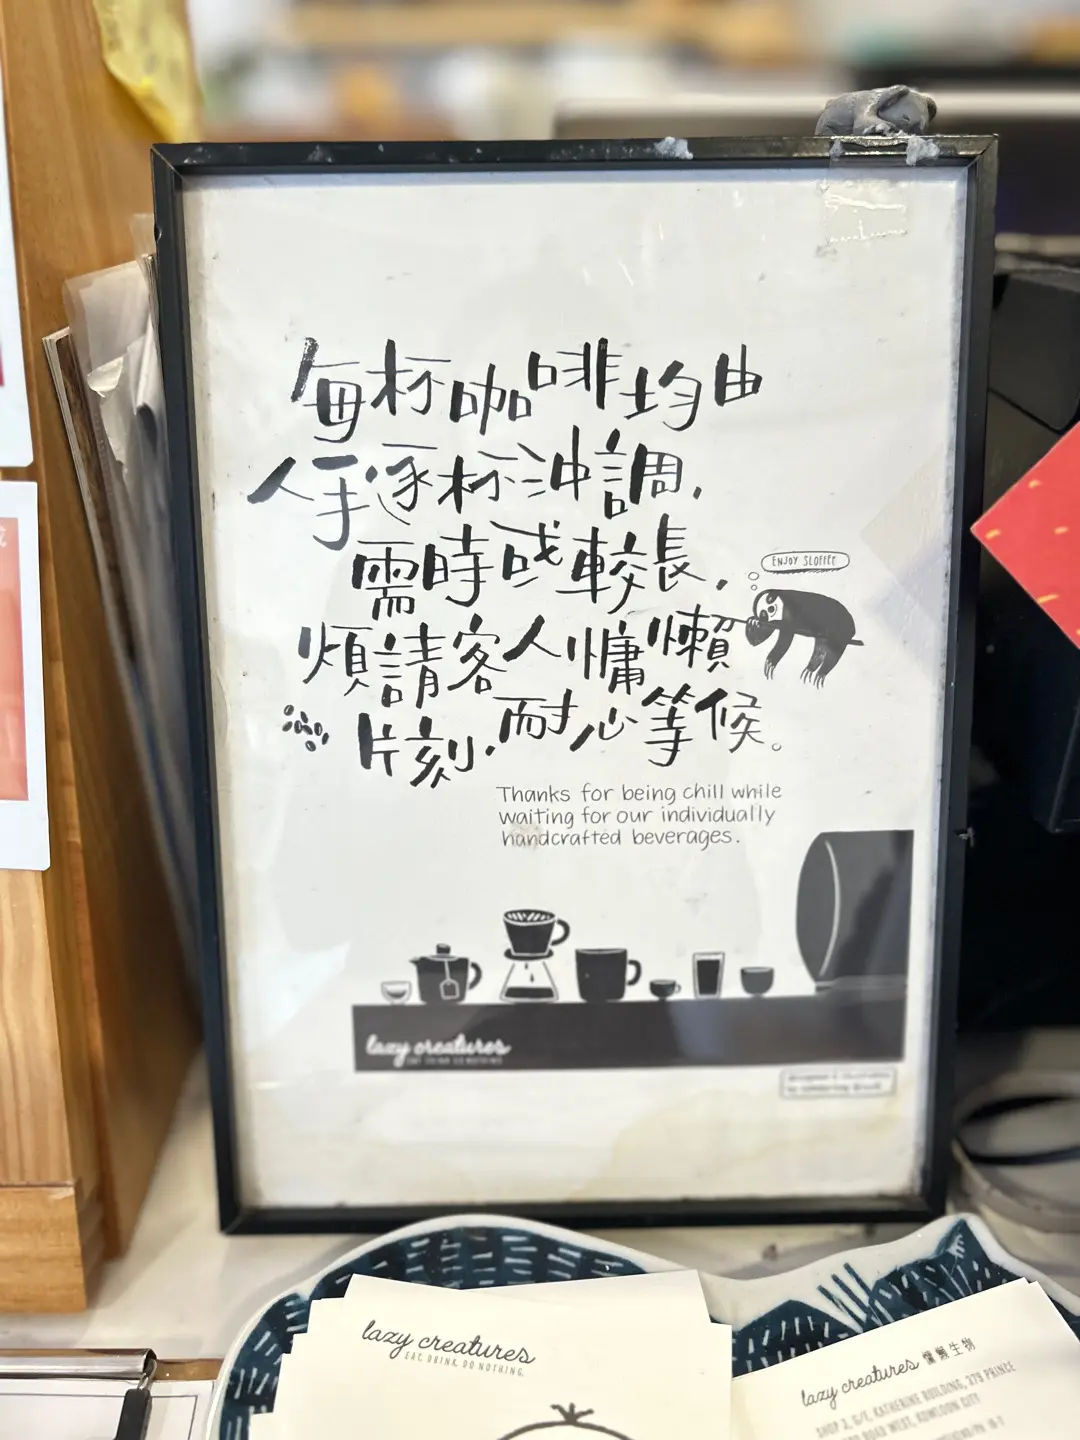 每杯咖啡均由
人手逐杯沖調，
需時或較長，
ENJOY SLOFFEE
煩請客人慵懶
片刻，耐心等候。
Thanks for being chill while
waiting for our individually
handcrafted beverages.
lazy creatures
EAT. DRINK. DO NOTHING.
lazy creatures
EAT. DRINK. DO NOTHING.
lazy creatures 慵懶生物
SHOP 2, G/F, KATHERINE BUILDING, 379 PRINCE
ROAD WEST, KOWLOON CITY